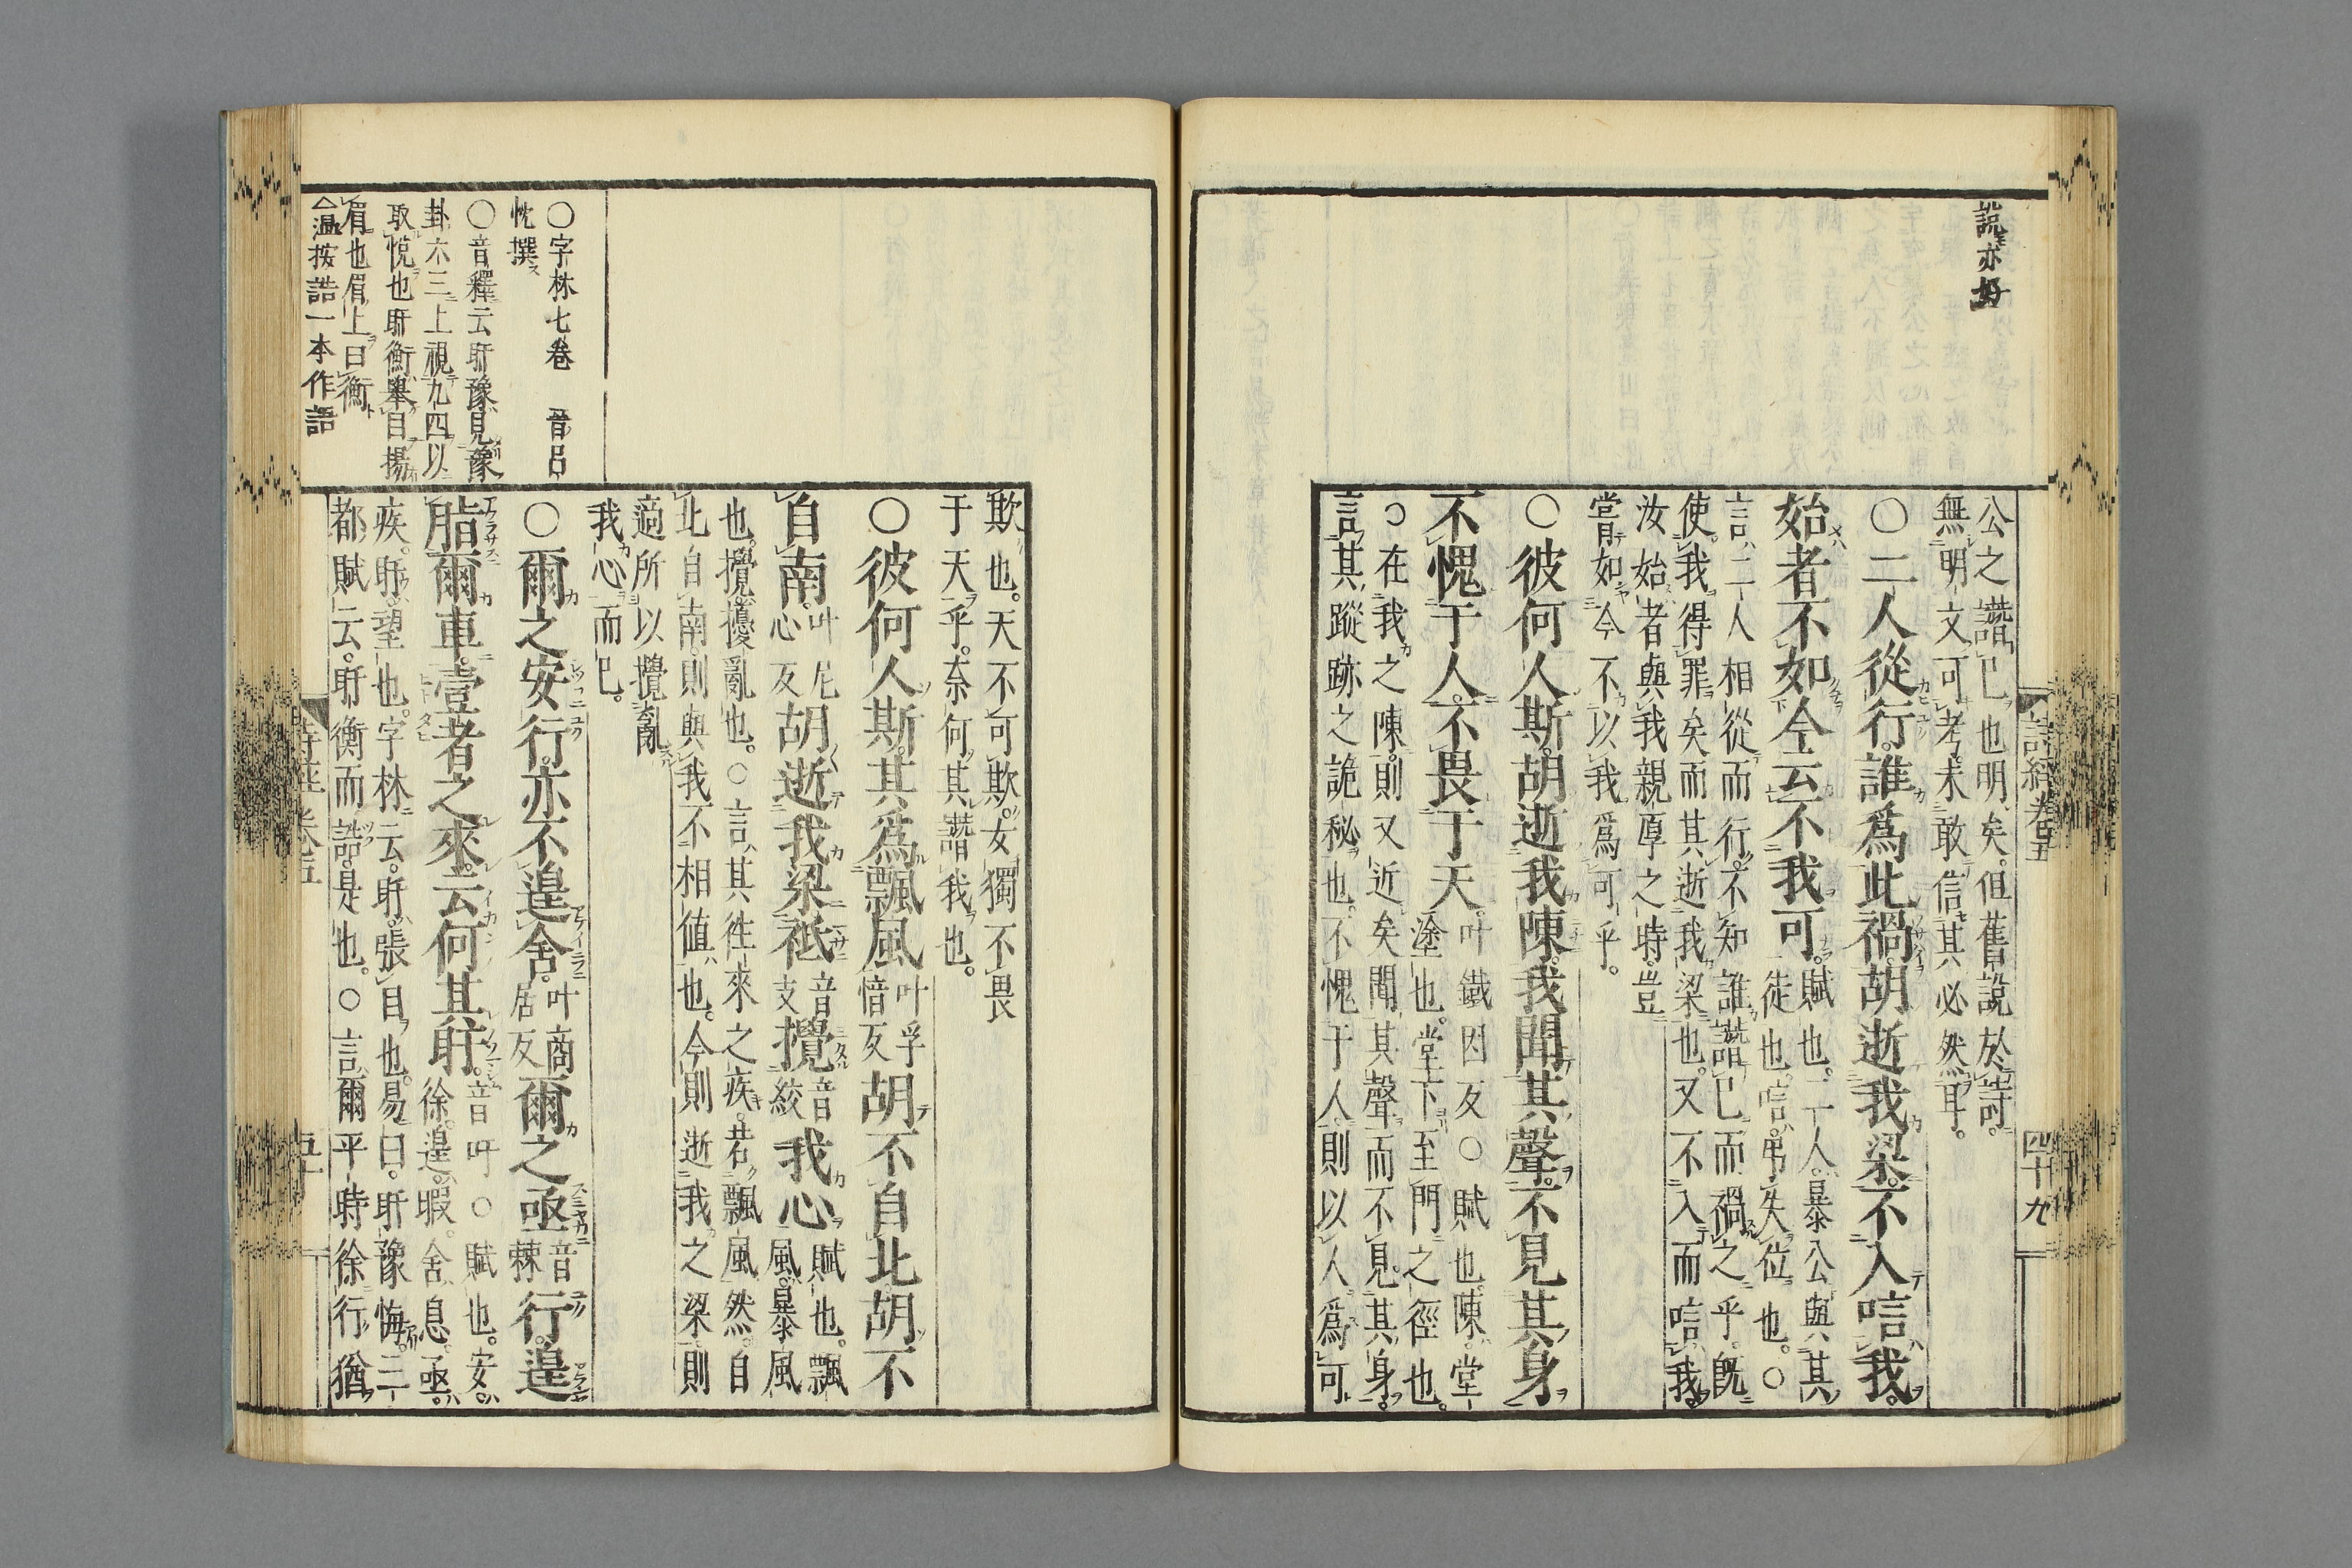 說亦好
詩經卷五
四十九
公之譖已也明矣。但舊說於詩。
無明文可考。未敢信其必然耳。
○二人從行。誰爲此禍。胡逝我梁。不入唁我。
始者不如今。云不我可。賦也。二人。暴公與其
徒也。唁。弔失位也。○
言二人相從而行。不知誰譖已而禍之乎。既
使我得罪矣。而其逝我梁也。又不入而唁我。
汝始者與我親厚之時。豈
嘗如今不以我爲可乎。
○彼何人斯。胡逝我陳。我聞其聲。不見其身
不愧于人。不畏于天。叶鐵因反○賦也。陳。堂
塗也。堂下至門之徑也。
○在我之陳。則又近矣。聞其聲而不見其身。
言其蹤跡之詭秘也。不愧于人。則以人爲可
欺也。天不可欺。女獨不畏
于天乎。奈何其譖我也。
○彼何人斯。其爲飄風叶孚愔反胡不自北。胡不
自南。叶尼心反胡逝我梁。祇音支攪音絞我心賦也。飄風。暴風
也。攪。擾亂也。○言其徃來之疾。若飄風然。自
北自南。則與我不相値也。今則逝我之梁。則
適所以攪亂
我心而已。
○爾之安行。亦不遑舍。叶商居反爾之亟音棘行。遑
脂爾車。壹者之來。云何其盱。音吁○賦也。安。
徐。遑。暇。舍。息。亟。
疾。盱。望也。字林云。盱。張目也。易曰。盱豫悔。三
都賦云。盱衡而誥。是也。○言爾平時徐行猶
○字林七卷 晉呂
忱撰
○音釋云盱豫見豫
卦六三上視九四以
取悅也盱衡舉目揚
眉也眉上曰衡
△温按誥一本作語
卷五
五十